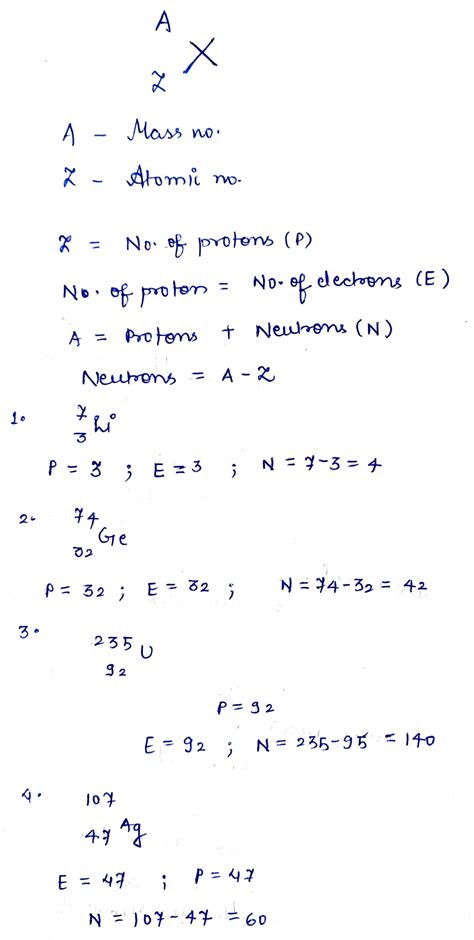 A
X
Z
A - Mass no.
Z - Atomic no.
Z = No. of protons (P)
No. of proton = No. of electrons (E)
A = Protons + Neutrons (N)
Neutrons = A - Z
1. 7
3 Li
P = 3 ; E = 3 ; N = 7-3 = 4
2. 74
32 Ge
P = 32 ; E = 32 ; N = 74-32 = 42
3. 235 U
92
P = 92
E = 92 ; N = 235-95 = 140
4. 107
47 Ag
E = 47 ; P = 47
N = 107-47 = 60